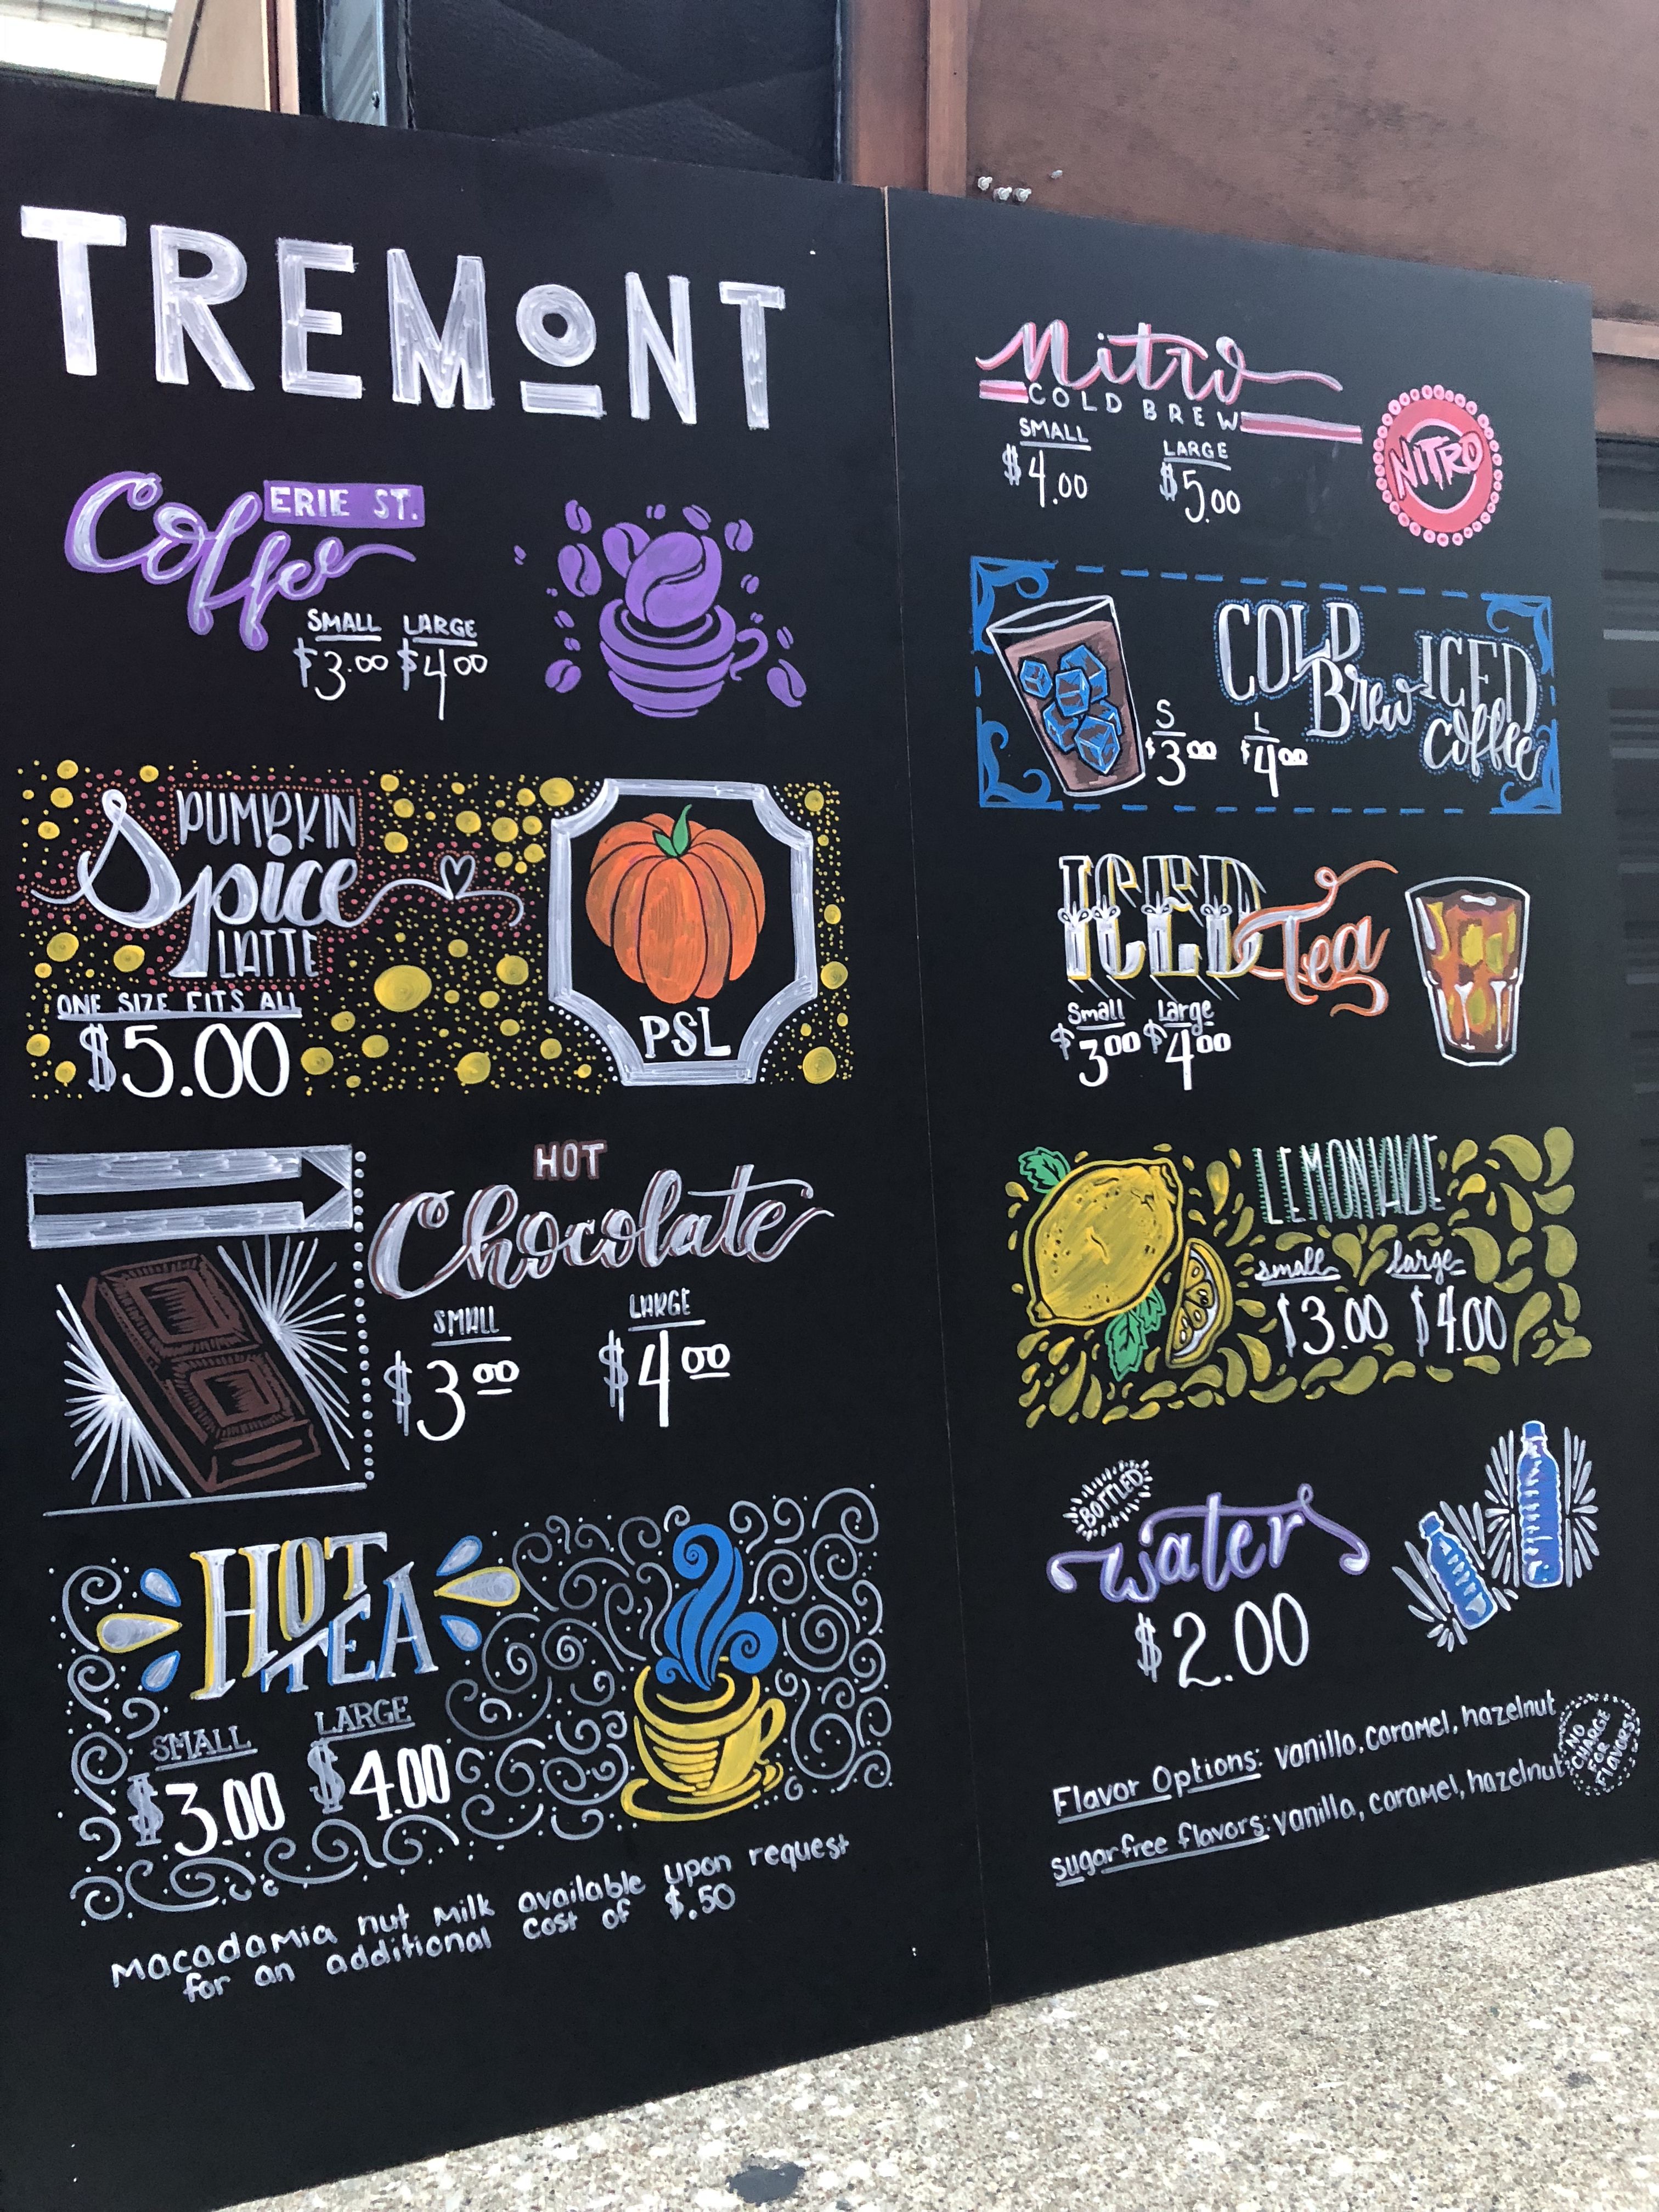 TREMONT
Coffee ERIE ST.
SMALL LARGE
$3.00 $4.00
PUMPKIN
Spice
LATTE
ONE SIZE FITS ALL
$5.00
PSL
HOT
Chocolate
SMALL LARGE
$3.00 $4.00
HOT
TEA
SMALL LARGE
$3.00 $4.00
Macadamia nut milk available upon request
for an additional cost of $.50
Nitro
COLD BREW
SMALL LARGE
$4.00 $5.00
NITRO
COLD
Brew ICED
coffee
S L
$3.00 $4.00
ICED Tea
Small Large
$3.00 $4.00
LEMONADE
small large
$3.00 $4.00
BOTTLED
water
$2.00
Flavor Options: vanilla, caramel, hazelnut
sugarfree flavors: vanilla, caramel, hazelnut
NO
CHARGE
FOR
FLAVORS!